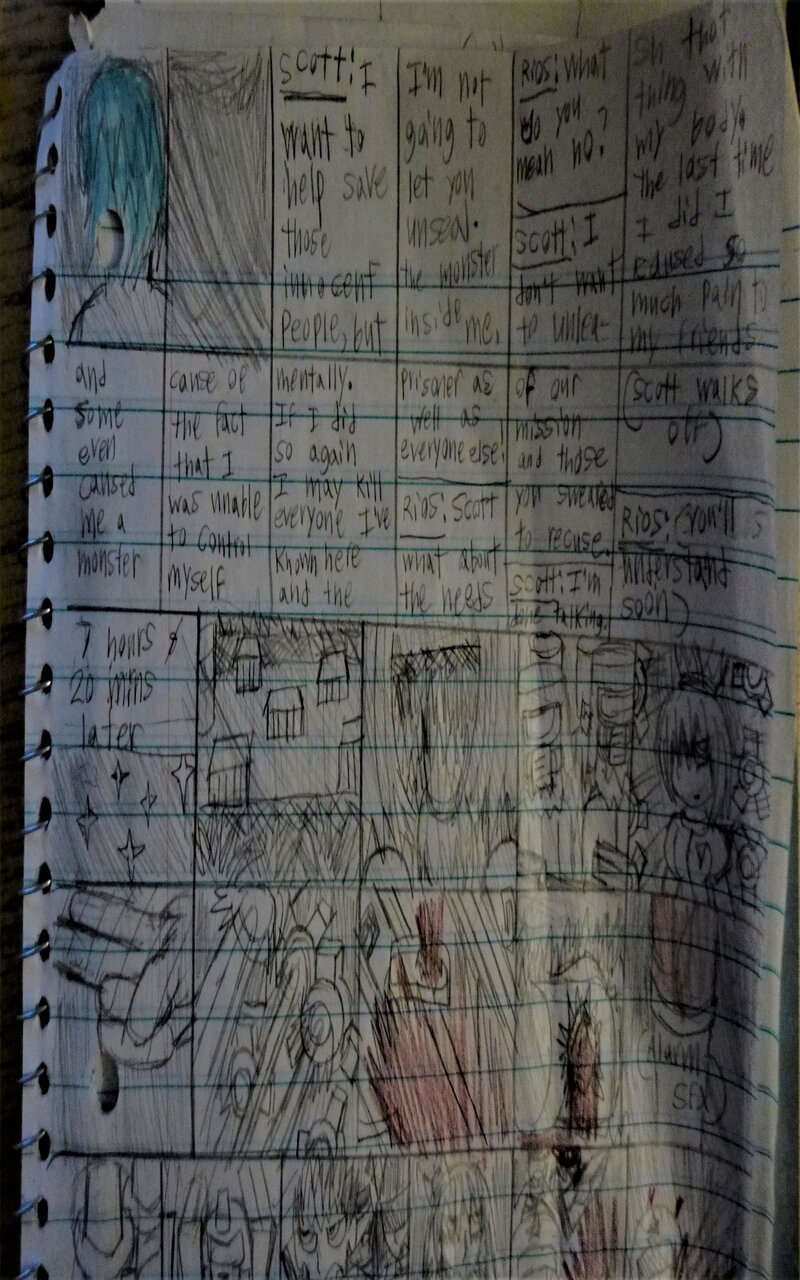 Scott: I
want to
help save
those
innocent
People, but
I'm not
going to
let you
unseal.
the monster
inside me.
Rios: What
do you
mean no?
Scott: I
don't want
to unlea-
sh that
thing with
my body.
the last time
I did I
caused so
much pain to
my friends
and
some
even
caused
me a
monster
cause of
the fact
that I
was unable
to control
myself
mentally.
If I did
so again
I may kill
everyone I've
known here
and the
prisoner as
well as
everyone else!
Rios: Scott
what about
the needs
of our
mission
and those
you sweared
to recuse.
Scott: I'm
done talking.
(Scott walks
off)
Rios: (You'll
understand
soon)
7 hours &
20 mins
later
(Alarm
SFX)